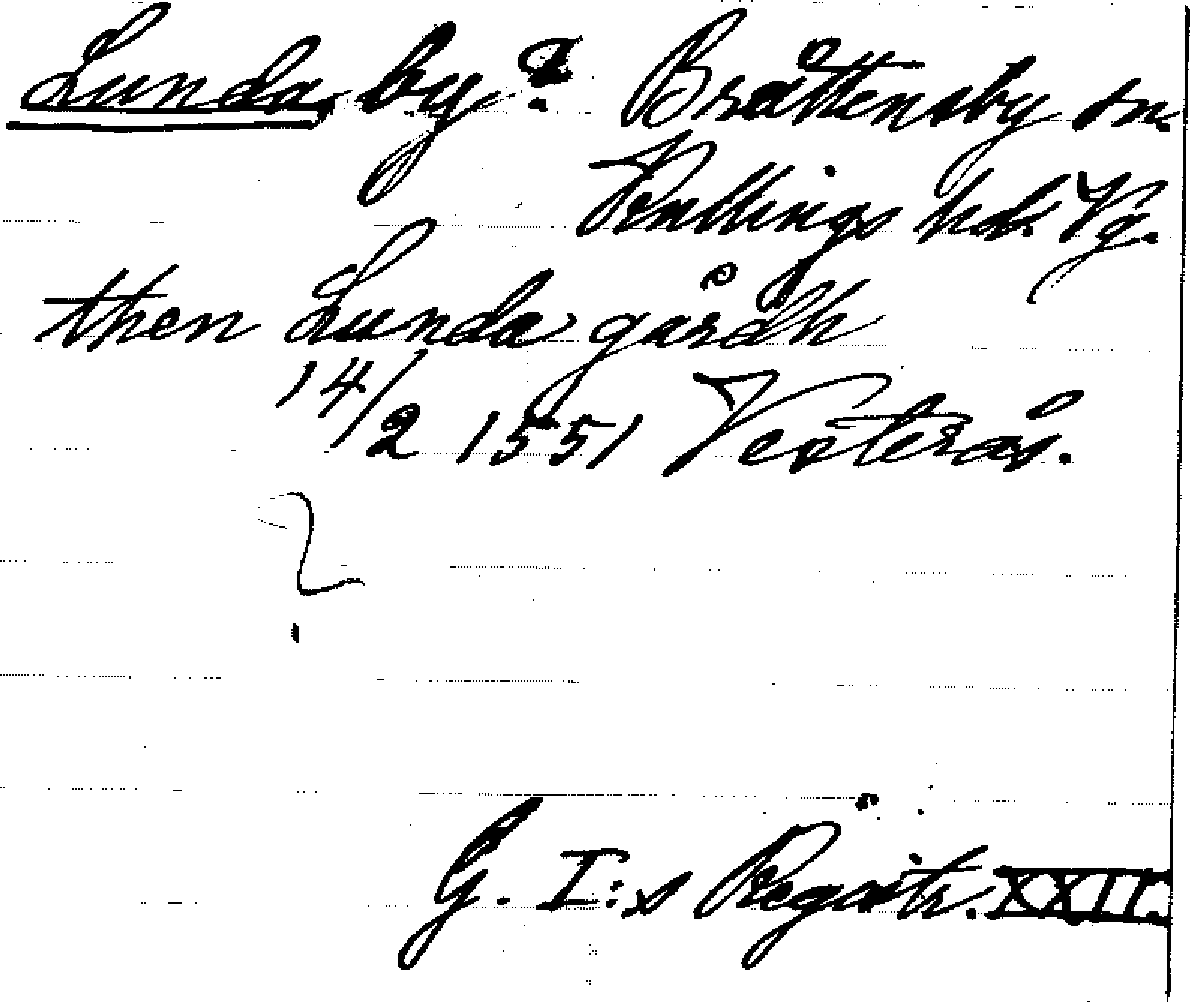 Lunda, by? Bråttensby sn.
Kullings hd. Vg.
then Lunda gårdh
14/2 1551 Vesterås.
?
G. I:s Registr. XXII.